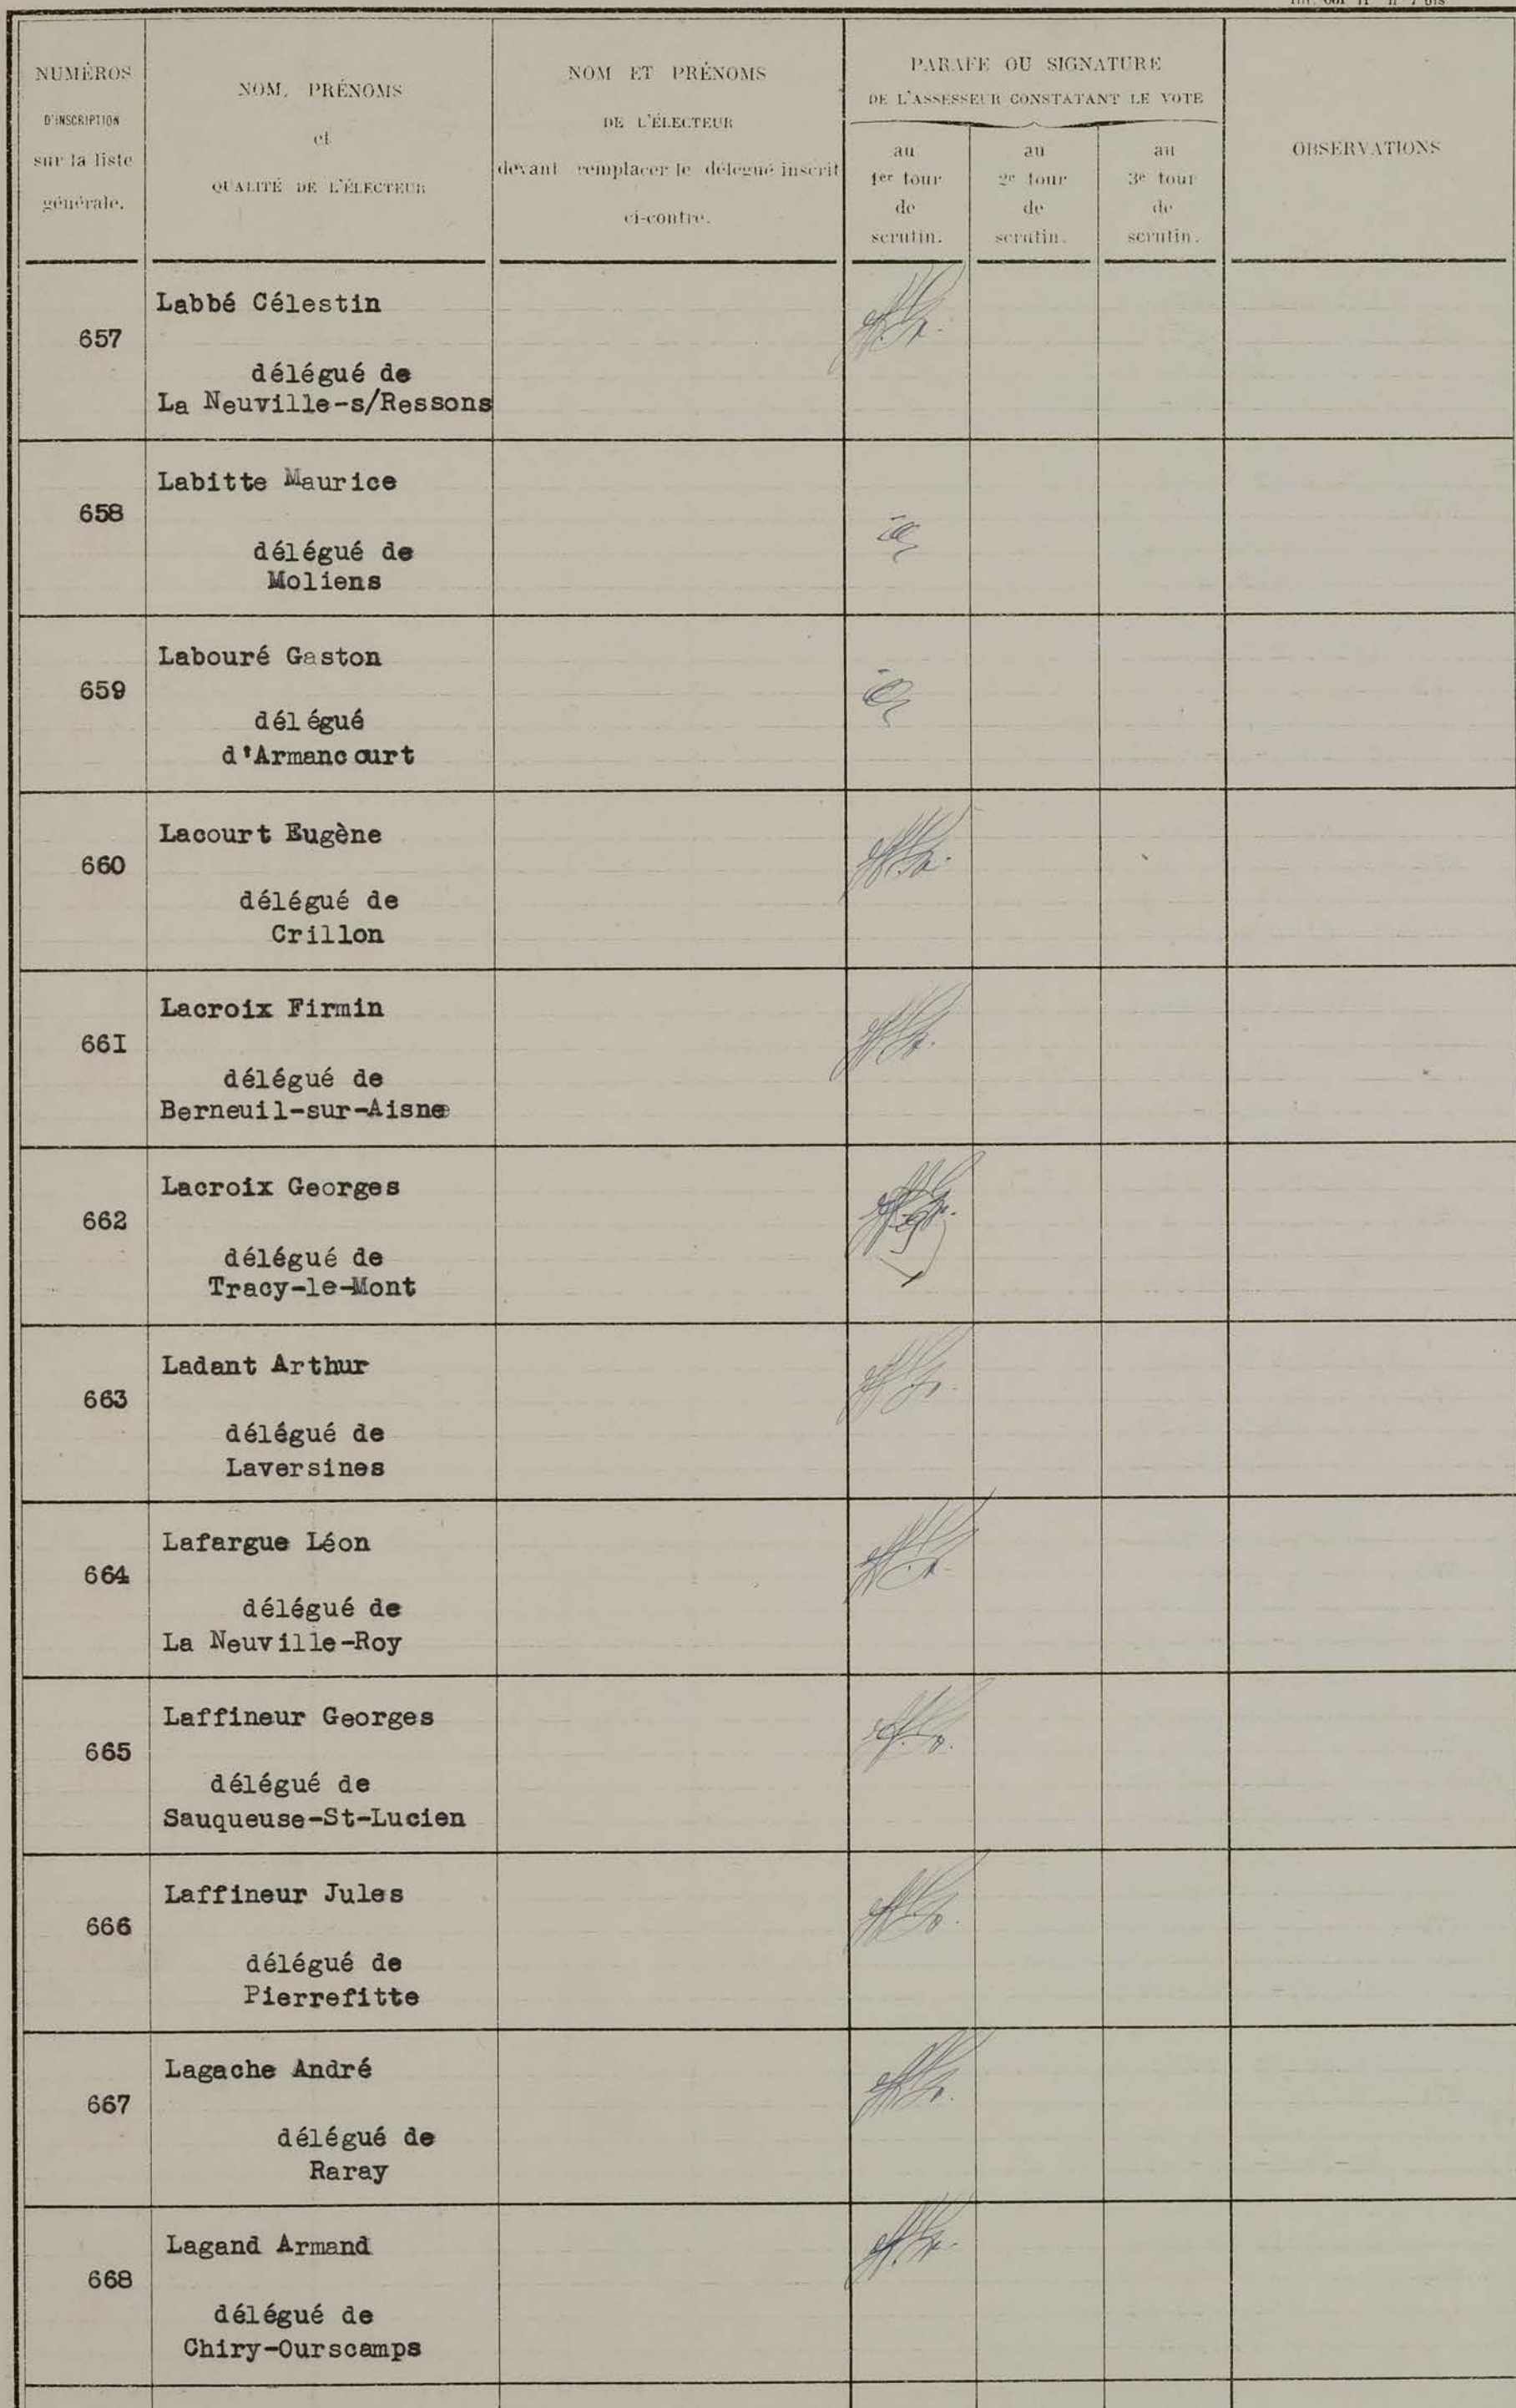 NUMÉROS
D'INSCRIPTION
sur la liste
générale.
NOM, PRÉNOMS
et
QUALITÉ DE L'ÉLECTEUR
NOM ET PRÉNOMS
DE L'ÉLECTEUR
devant remplacer le délégué inscrit
ci-contre.
PARAFE OU SIGNATURE
DE L'ASSESSEUR CONSTATANT LE VOTE
au
1er tour
de
scrutin.
au
2e tour
de
scrutin.
au
3e tour
de
scrutin.
OBSERVATIONS
657
Labbé Célestin
délégué de
La Neuville-s/Ressons
658
Labitte Maurice
délégué de
Moliens
659
Labouré Gaston
délégué
d'Armancourt
660
Lacourt Eugène
délégué de
Crillon
66I
Lacroix Firmin
délégué de
Berneuil-sur-Aisne
662
Lacroix Georges
délégué de
Tracy-le-Mont
663
Ladant Arthur
délégué de
Laversines
664
Lafargue Léon
délégué de
La Neuville-Roy
665
Laffineur Georges
délégué de
Sauqueuse-St-Lucien
666
Laffineur Jules
délégué de
Pierrefitte
667
Lagache André
délégué de
Raray
668
Lagand Armand
délégué de
Chiry-Ourscamps